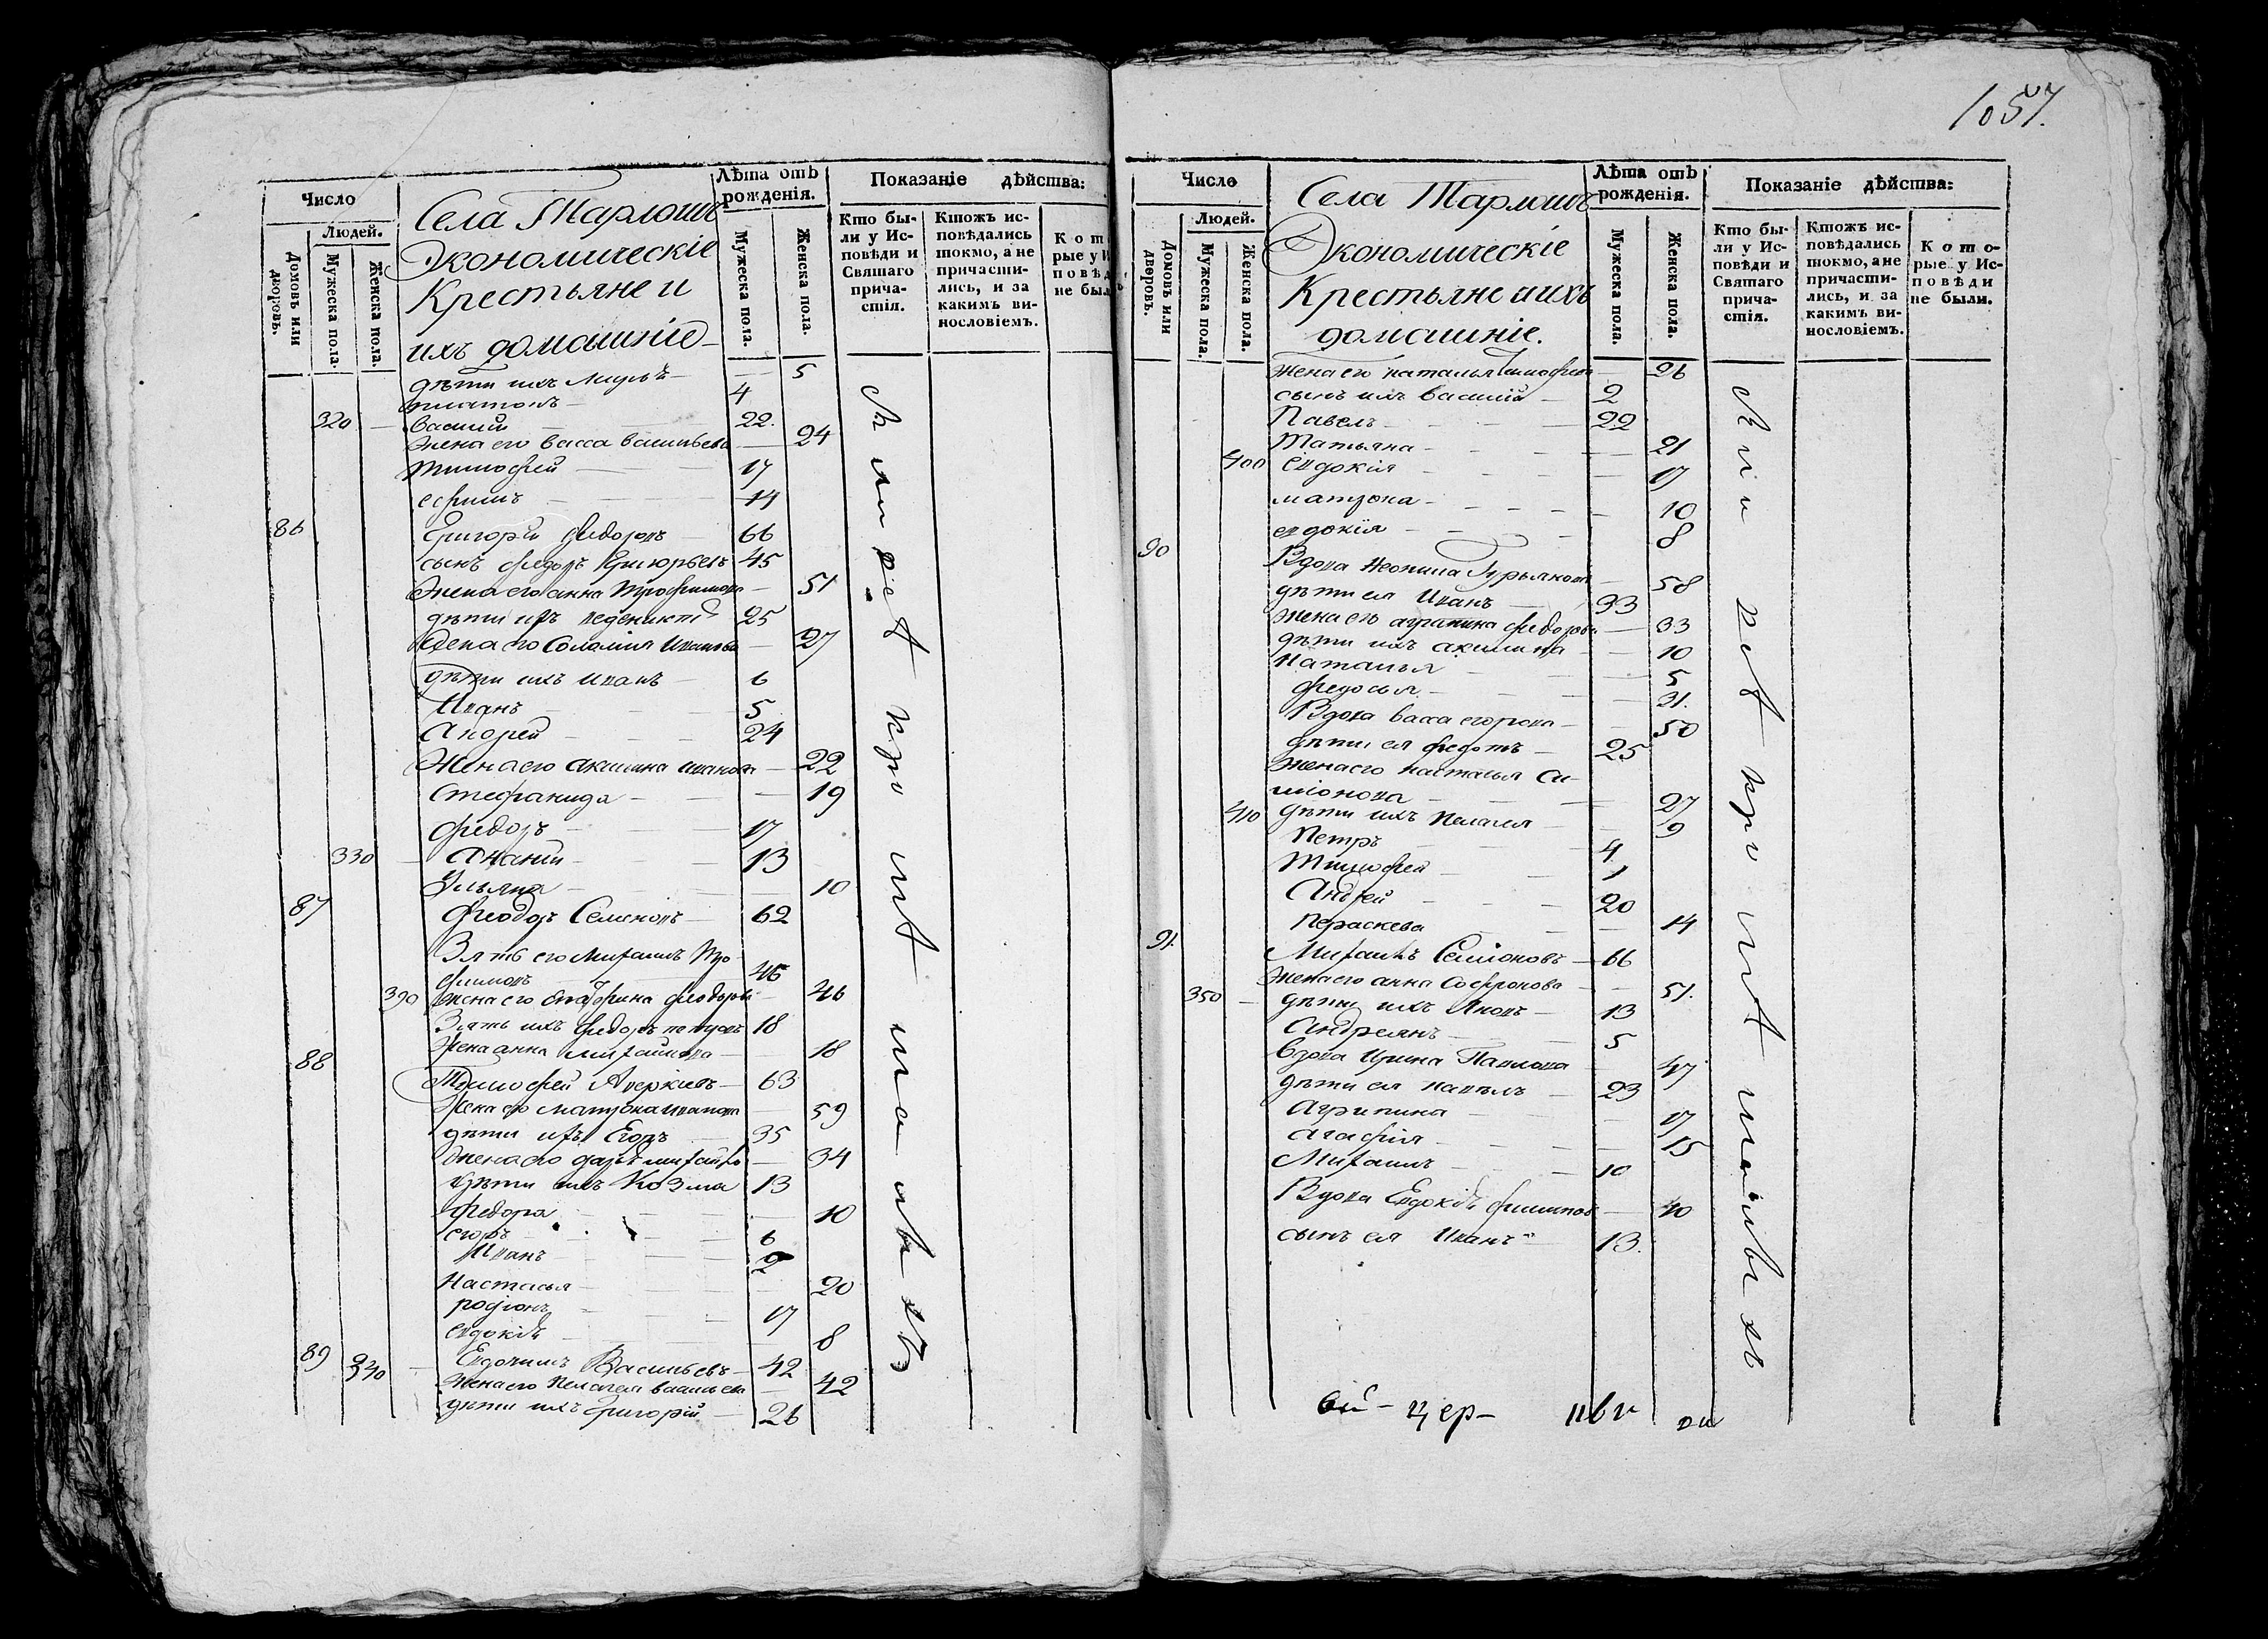 1057.
Число
Людей.
Домовъ или дворовъ.
Мужеска пола.
Женска пола.
Села
Экономическіе
Крестьяне и
ихъ домашніе
Лѣта отъ
рожденія.
Мужеска пола.
Женска пола.
Показаніе дѣйства:
Кто бы-
ли у Ис-
повѣди и
Святаго
прича-
стія.
Ктожъ ис-
повѣдались
токмо, а не
причасти-
лись, и за
какимъ ви-
нословіемъ.
дѣти ихъ 5
4
320 Василий 22.
Жена его васса васильева 24
Тимофей 17
ефимъ 14
86 Григорїй Федоровъ 66
сынъ федоръ Григорьевъ 45
Жена его анна Трофимова 51
дѣти ихъ 25
Жена его Соломия Иванова 27
дѣти ихъ иванъ 6
Иванъ 5
Андрей 24
Жена его акилина иванова 22
Стефанида 19
федоръ 17
330 Ананий 13
Ульяна 10
87 Феодоръ Семеновъ 62
Зять его Михаилъ Тро-
фимовъ 45
390 жена его феодорова 46
Зять ихъ федоръ петровъ 18
Жена анна михайлова 18
88 Тимофей Аверкиевъ 63
Жена его матрона иванова 59
дѣти ихъ Егоръ 35
Жена его дарья 34
дѣти ихъ Козма 13
федора 10
егоръ 6
Иванъ 2
Настасья 20
родіонъ 17
евдокія 8
89 340 Евдокимъ Васильевъ 42
Жена его Пелагея васильева 42
дѣти ихъ Григорій 26
Число
Людей.
Домовъ или дворовъ.
Мужеска пола.
Женска пола.
Села
Экономическіе
Крестьяне и ихъ
домашніе.
Лѣта отъ
рожденія.
Мужеска пола.
Женска пола.
Показаніе дѣйства:
Кто бы-
ли у Ис-
повѣди и
Святаго
прича-
стія.
Ктожъ ис-
повѣдались
токмо, а не
причасти-
лись, и за
какимъ ви-
нословіемъ.
Кото-
рые у Ис-
повѣди
не были.
Жена его наталья тимофеева 26
сынъ ихъ василий 2
Павелъ 22
Татьяна 21
400 Евдокія 17
матрона 10
евдокія 8
90 Вдова 58
дѣти ея Иванъ 33
Жена его агрипина федорова 33
дѣти ихъ акилина 10
Наталья 5
федосья 31.
Вдова васса егорова 50
дѣти ея федотъ 25
Жена его настасья Си-
міонова 27
410 дѣти ихъ Пелагея 9
Петръ 4
Тимофей 1
Андрей 20
Параскева 14
91. Михаилъ Семіоновъ 66
Жена его анна Софронова 51.
350 дѣти ихъ Яковъ 13
Андреянъ 5
Вдова Ирина Павлова 47
дѣти ея павелъ 23
Агрипина 17
агафія 15
Михаилъ 10
Вдова Евдокія филипова 40
сынъ ея Иванъ 13.
цер-